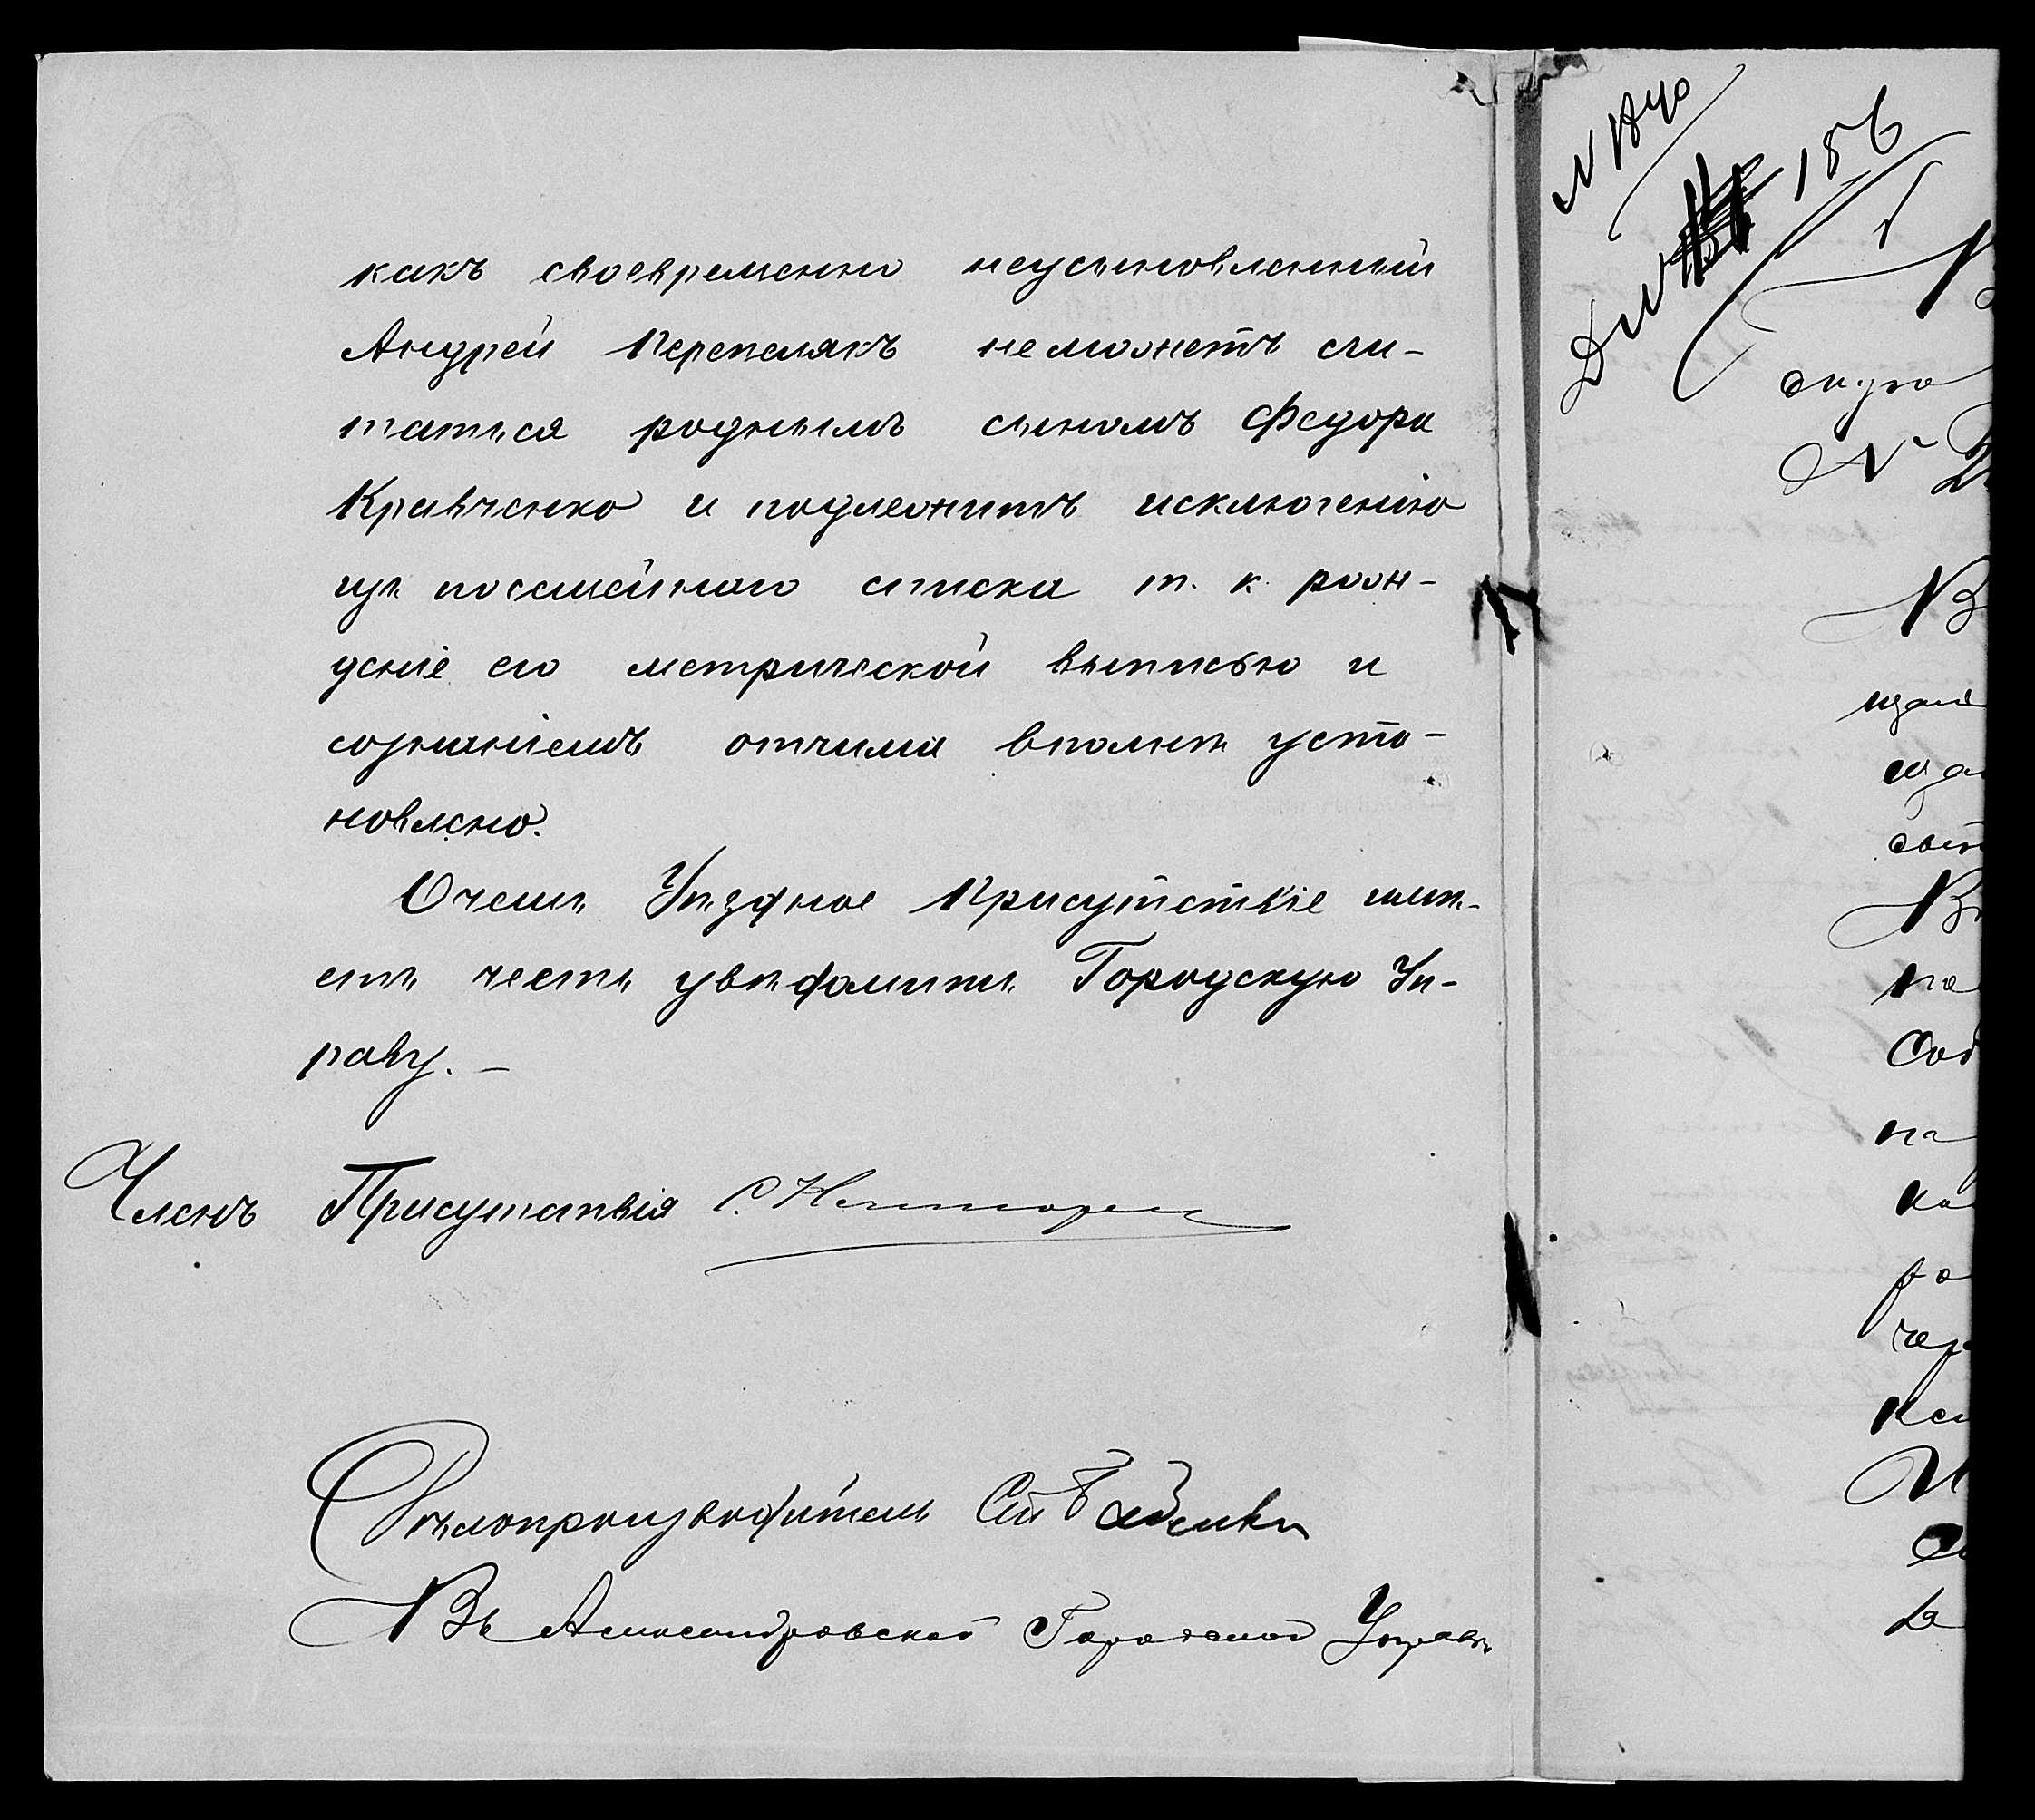 какъ своевременно неусыновленный
Андрей Перепелякъ не можетъ счи-
таться роднымъ сыномъ Федора
Кравченко и подлежитъ исключенію
изъ посемейнаго списка т. к. рож-
деніе его метрической выписью и
сознаніемъ отчима вполнѣ уста-
новлено.
О чемъ Уѣздное Присутствіе имѣ-
етъ честь увѣдомить Городскую Уп-
раву. –
Членъ Присутствія
Дѣлопроизводитель
Въ Александровской Городской Управѣ
№
186